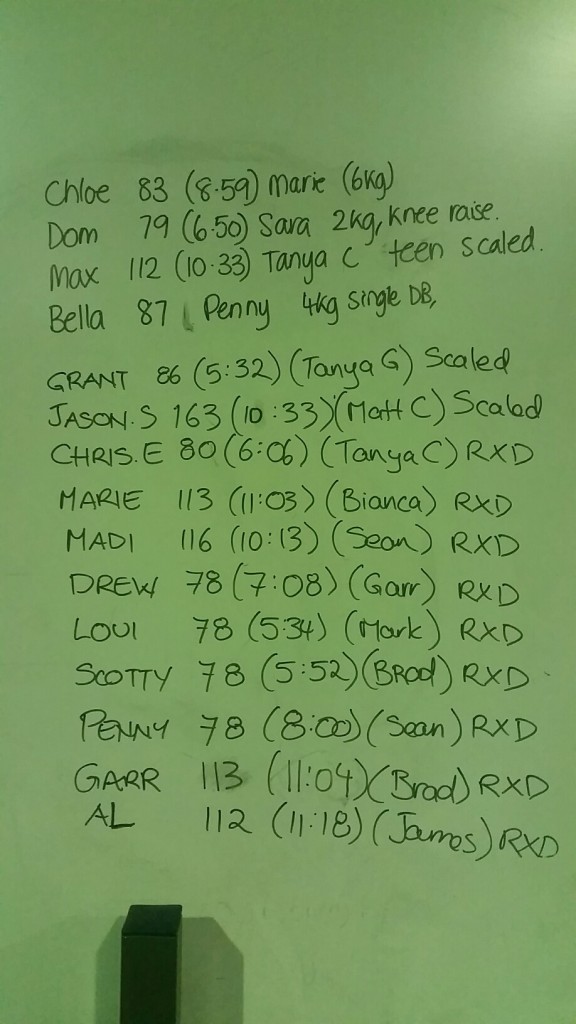 Chloe 83 (8.59) Marie (6kg)
Dom 79 (6.50) Sara 2kg, knee raise.
Max 112 (10.33) Tanya C teen scaled.
Bella 87 Penny 4kg single DB,
GRANT 86 (5:32) (Tanya G) Scaled
JASON.S 163 (10:33) (Matt C) Scaled
CHRIS.E 80 (6:06) (Tanya C) RXD
MARIE 113 (11:03) (Bianca) RXD
MADI 116 (10:13) (Sean) RXD
DREW 78 (7:08) (Garr) RXD
LOUI 78 (5:34) (Mark) RXD
SCOTTY 78 (5:52) (BRad) RXD
PENNY 78 (8:00) (Sean) RXD
GARR 113 (11:04) (Brad) RXD
AL 112 (11:18) (James) RXD